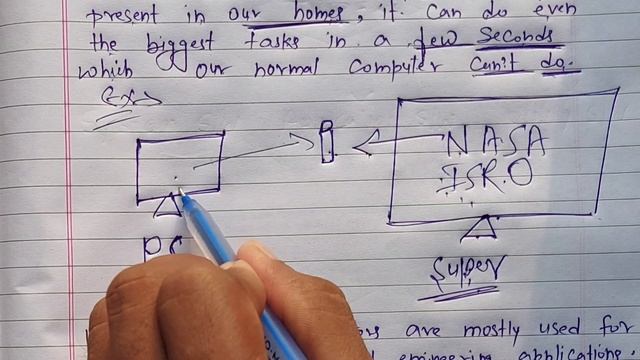 present in our homes, it can do even
the biggest tasks in a few seconds
which our normal computer can't do.
Ex
NASA
ISRO
PC
Super
are mostly used for
engineering applications.